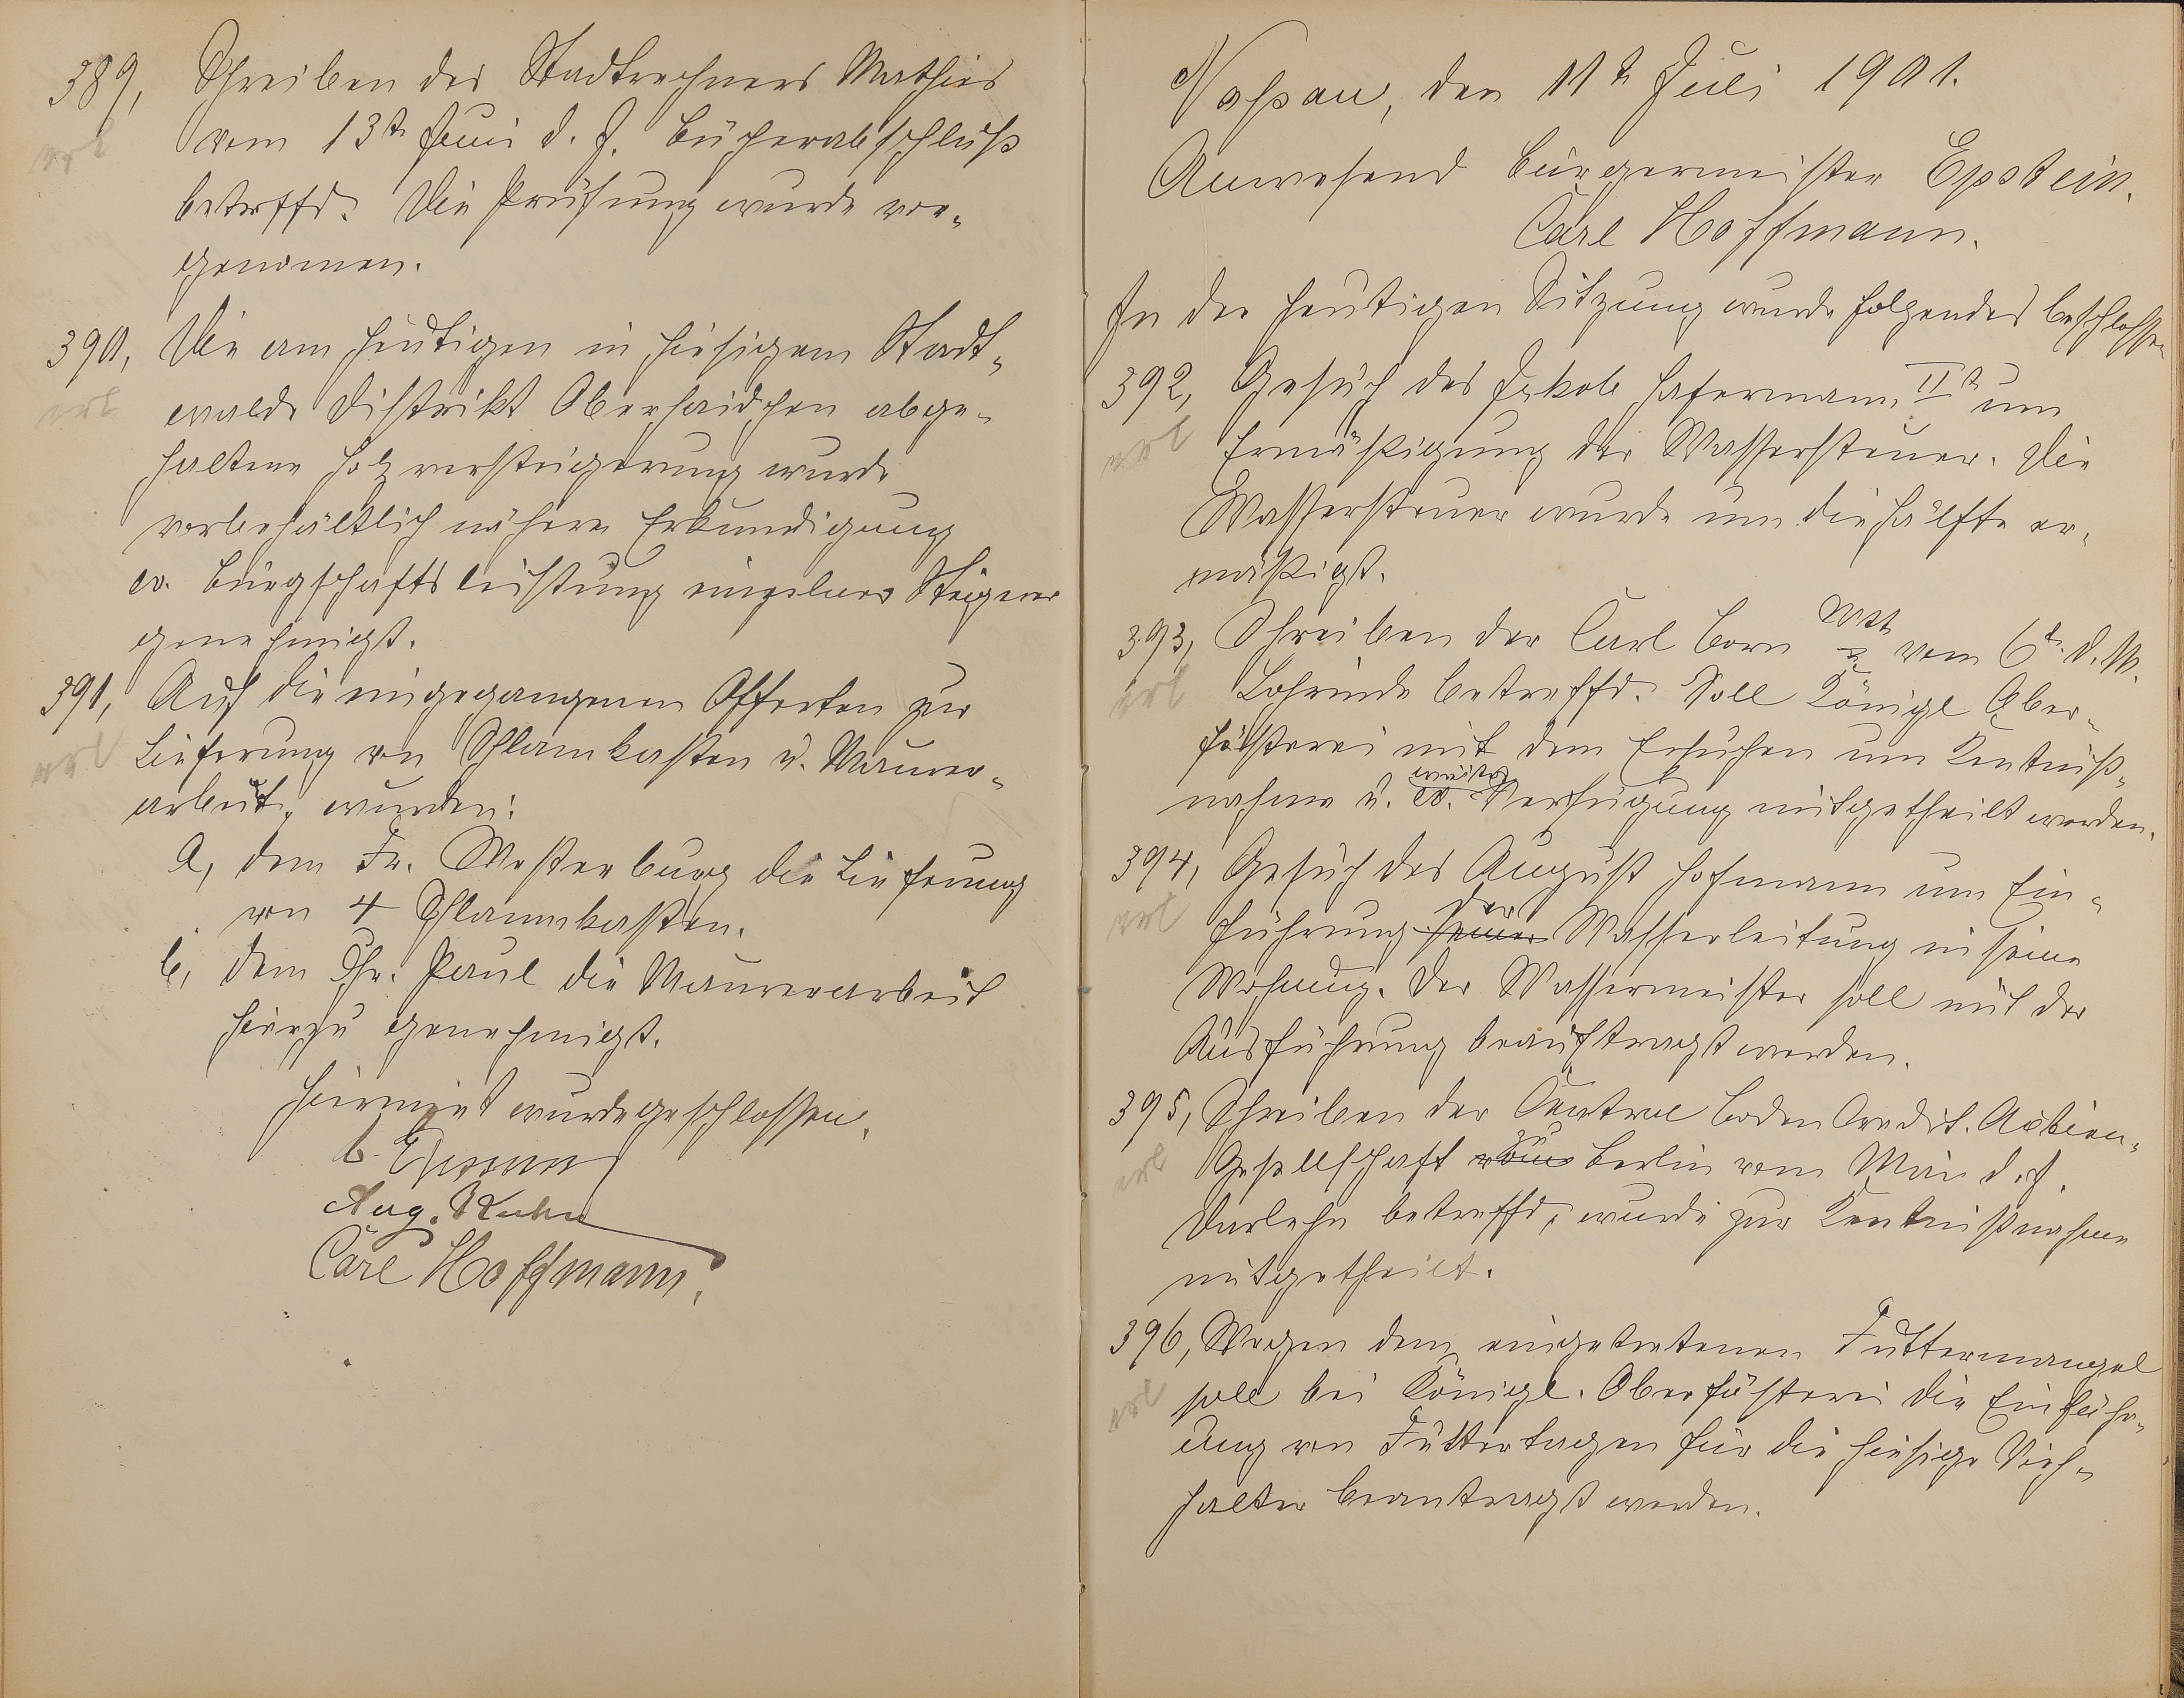 389, Schreiben des Stadtrechners Mathies
erl vom 13t Juni d. J. Bücherabschluß
betreffd. Die Prüfung wurde vor-
genomen.
390, Die am heutigen in hiesigem Stadt-
erl walde Distrikt Oberhaidchen abge-
haltene Holzversteigerung wurde
vorbehältlich nähere Erkundigung
ev. Bürgschaftsleistung einzelner Steigerer
genehmigt.
391, Auf die eingegangenen Offerten zur
erl Lieferung von Schlamkasten u. Maurer-
arbeit, wurden:
a, dem Fr. Westerburg die Lieferung
von 4 Schlammkasten.
b, dem Chr. Paul die Maurerarbeit
hierzu genehmigt.
Hiermit wurde geschlossen.
Aug. Kuhn
Carl Hoffmann.
Nassau, den 11t Juli 1901.
Anwesend Bürgermeister Epstein.
Carl Hoffmann.
In der heutigen Sitzung wurde folgendes beschlossen
392, Gesuch des Jakob Hafermann IIt um
erl Ermäßigung der Wassersteuer. Die
Wassersteuer wurde um die Hälfte er-
mäßigt.
393, Schreiben der Carl Born Wtt vom 6t d. M.
erl Lohrinde betreffd. Soll Königl Ober-
försterei mit dem Ersuchen um Kentniß-
nahme u. ev. weiter Verfügung mitgetheilt werden.
394, Gesuch des August Hofmann um Ein-
erl führung seiner der Wasserleitung in seine
Wohnung. Der Wassermeister soll mit der
Ausführung beauftragt werden.
395, Schreiben der Central Boden Credit. Actien-
erl Gesellschaft zu Berlin vom Mai d. J.
Darlehn betreffd, wurde zur Kentnißnahme
mitgetheilt.
396, Wegen dem eingetretenen Futtermangel
erl soll bei Königl. Oberfösterei die Einführ-
ung von Futtertagen für die hiesige Vieh-
halter beantragt werden.